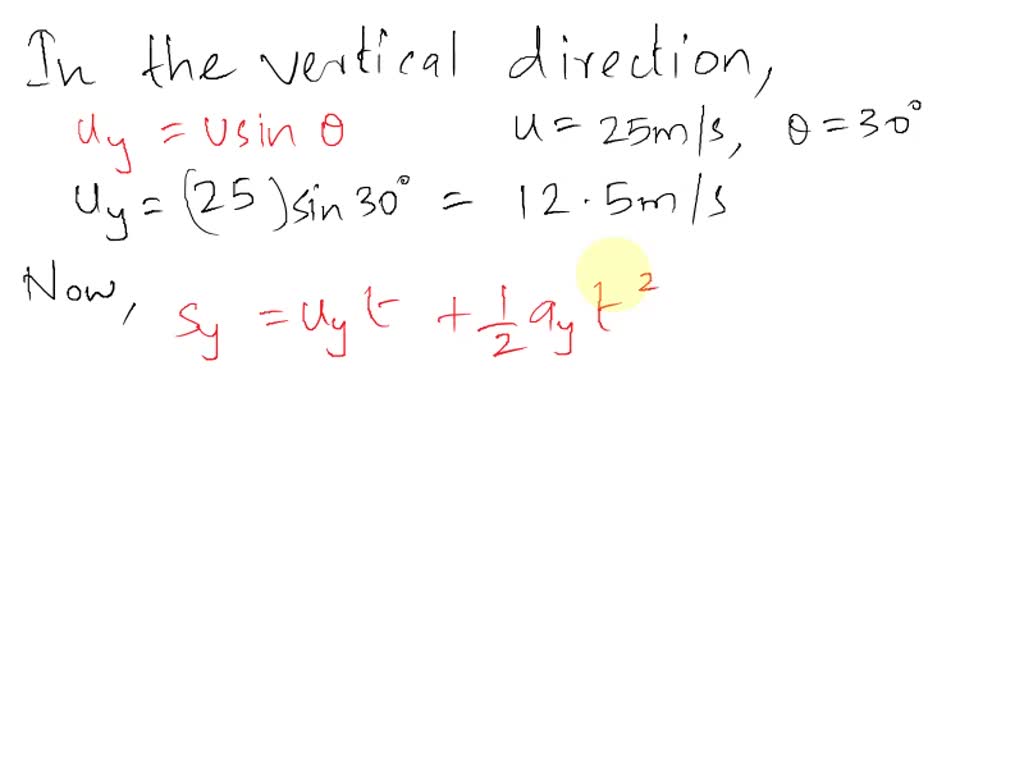 In the vertical direction,
uy = u sin θ u = 25m/s, θ = 30°
uy = (25) sin 30° = 12.5m/s
Now, sy = uy t + 1/2 ay t²